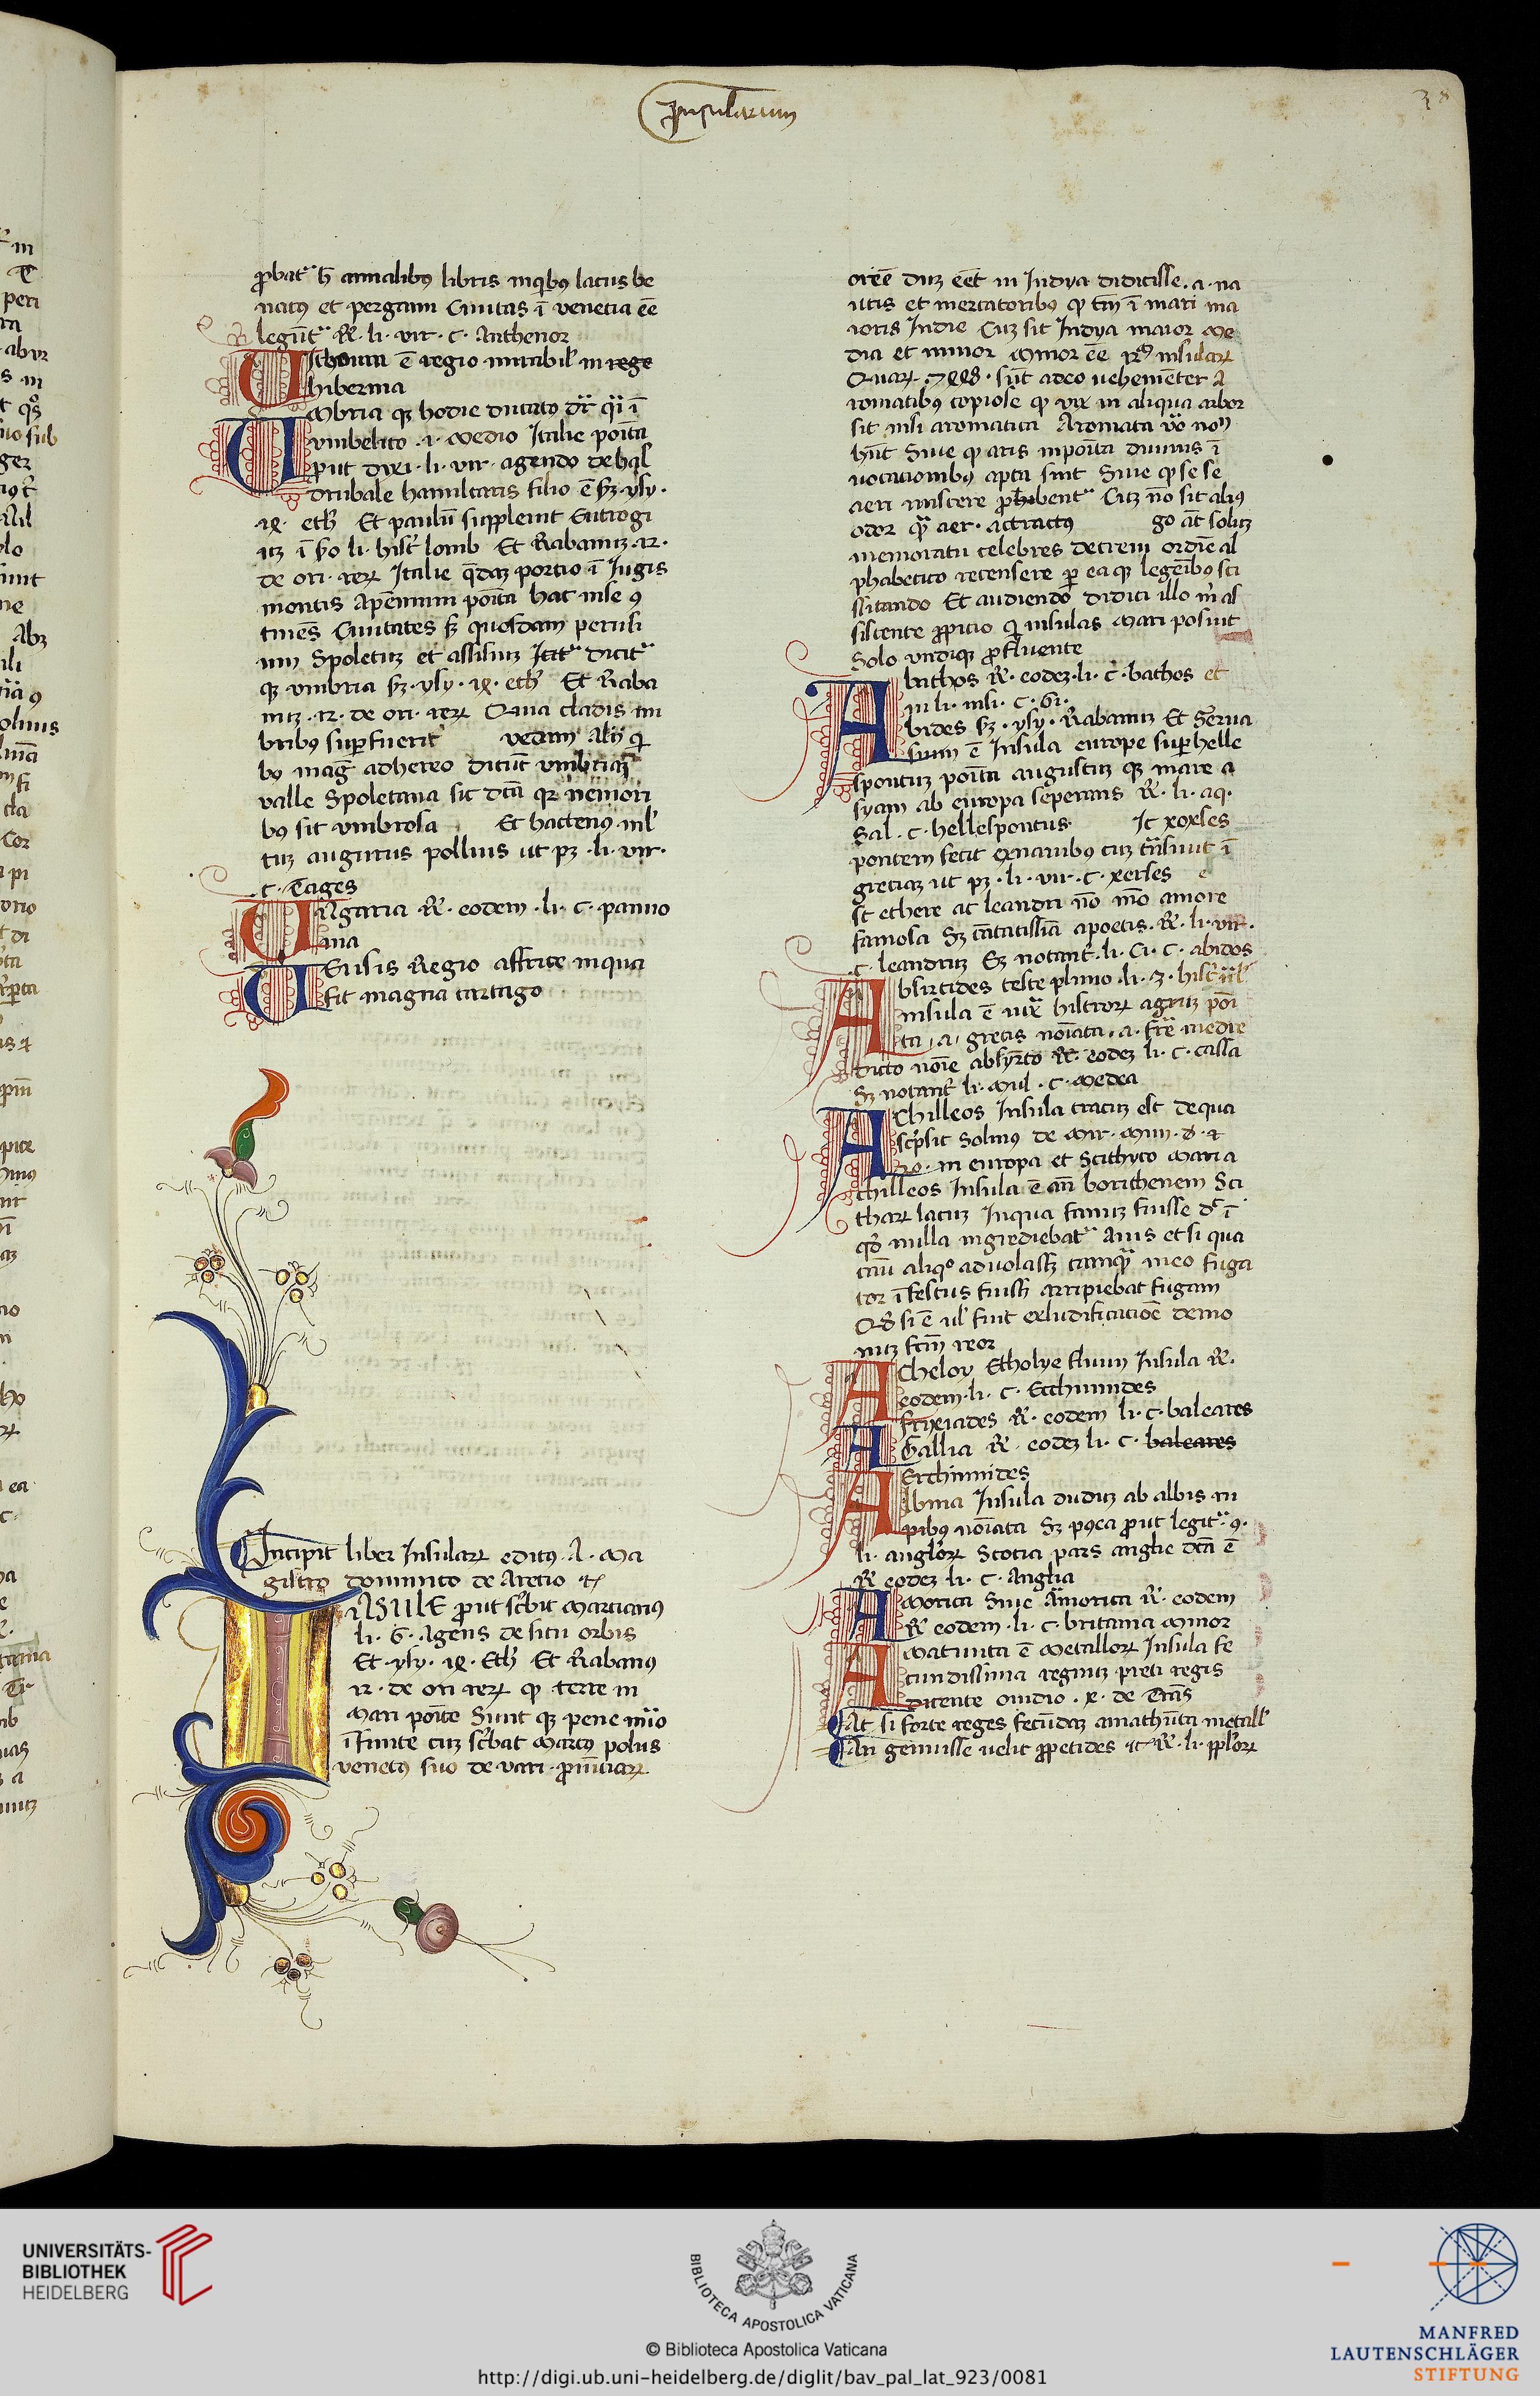 Insularum
38
ꝓbatᷣ ħ annalibꝰ libris inqbꝰ lacus be
nacꝰ et pergami Ciuitas ī venecia eē
legūtᷣ R̄. li. vir. c. Anthenor
Vltonia ē regio mirabil in rege
hibernia
Vmbria qꝫ hodie ducatꝰ dr̄ ī
vmbelico .i. medio Italie poīta
put dixi. li. vir. agendo de has
drubale hamilcaris filio ē sꝫ. ysy.
.ix. eth Et paulū suppleuit Eutropi
Et Rabanuꝫ .12.
de ori. reꝝ Italie q̄daꝫ portio ī Iugis
montis Apēnini poīta hac inse ꝯ
tinēs Ciuitates sꝫ quosdam perusi
um Spoletuꝫ et assisiuꝫ dicitᷣ
qꝫ vmbria sꝫ. ysy. ix. eth Et Raba
nuꝫ .12. de ori. reꝝ Qua cladis im
bribꝰ suꝑfuerit
bꝰ mag adhereo dicūt vmbriaꝫ
valle Spoletana sic dc̄a qꝛ nemori
bꝰ sit vmbrosa Et hactenꝰ
tuꝫ pollens ut pꝫ .li. vir.
.c. Tages
VNgaria R̄. eodem .li. c. panno
nia
VEusis Regio affrice inqua
sit magna cartago
Incipit liber Insulaꝝ editꝰ .A. Ma
gistro dominico de Aretio
INSULE ꝓut sc̄bit Marcianꝰ
li. 6. Agens de situ orbis
Et .ysy. ix. Eth Et Rabanꝰ
12. de ori reꝝ qꝫ terre in
Mari poīte Sunt qꝫ pene
īfinite cuꝫ sc̄bat Marcꝰ polus
venetꝰ suo de vari. ꝓuīciaꝝ
duꝫ eēt in Indya didicisse .a. na
utis et mercatoribꝰ qꝫ tm̄ ī mari ma
ioris Indie Cuꝫ sit Indya maior Me
dia et minor insulaꝝ
sūt adeo uehemēter a
romatibꝰ copiose qꝫ vix in aliqua arbor
sit nisi aromatica Aromata v̄o nō
hn̄t Siue qꝫ aris inpoīta diuinis ī
uocacionibꝰ apta sint Siue qꝫ se se
aeri miscere ꝓhibentᷣ Cuꝫ nō sit aliꝰ
odor qua aer. actractꝰ go āt solitꝫ
memoratu celebres decreui ordīe al
phabetico recensere ꝑ ea qꝫ legēibꝰ sci
scitando Et audiendo didici illo m̄ as
siscente ꝓpicio q̄ insulas Mari posuit
Solo vndiqꝫ ꝓfluente
Abathos R̄. eodeꝫ. li. c. bathos et
Abides sꝫ .ysy. Rabanuꝫ Et Serua
sium ē Insula europe suꝑ helle
spontuꝫ poīta angustuꝫ qꝫ mare a
syam ab europa seperans R̄. li. aq.
Sal. c. hellespontus. Ic xoxses
pontem fecit exnauibꝰ cuꝫ trāsiuit ī
greciaꝫ ut pꝫ. li. vir. c. xerses e
st ethere ac leandri nō mō amore
famosa Sꝫ cātatissīa apoetis. R̄. li. vir.
.c. leandruꝫ Sꝫ notant. li. Ci. c. abidos
Absirtides teste plinio .li. 3. hist
insula ē iux̄ histroꝝ agruꝫ poī
ta .a. grecis noīata .a. fr̄e medee
dicto noīe absyrto R̄. eodeꝫ li. c. cassa
Sꝫ notant li. Mul. c. Medea
AChilleos Insula traciuꝫ est dequa
scꝑsit Solinꝰ de Mir. Mun. d. 4
in europa et Scithyco Mari a
chilleos Insula ē an̄ borithenem Sci
thaꝝ lacuꝫ Inqua fanuꝫ fuisse d̄r ī
qd̄ nulla ingrediebatᷣ Auis et si qua
aliqͦ aduolassꝫ tamqua meo fuga
tor īfestus fuisꝫ arripiebat fugam
Qd̄ si ē ul fuit exludificacioē demo
nuꝫ fcm̄ reor
AChelov Etholye fluuii Insula R̄.
eodem. li. c. Ecchinnides
Afrysiades R̄. eodem li. c. baleares
AGallia R̄. eodeꝫ li. c. baleares
Ecchinnides
Albina Insula duduꝫ ab albis ru
pibꝰ noīata Sꝫ pꝰea ꝓut legitᷣ ꝯ.
li. angloꝝ Scotia pars anglie dc̄a ē
R̄ eodeꝫ li. c. Anglia
AMorica Siue Amorica R̄. eodem
R̄ eodem. li. c. britania minor
AMatunta ē Metalloꝝ Insula fe
cundissima regnuꝫ preti regis
dicente ouidio .x. de Trās
At si forte reges fecūdaꝫ amathūta metall
An genuisse uelit ꝓpetides R̄. li. pploꝝ
UNIVERSITÄTS-
BIBLIOTHEK
HEIDELBERG
BIBLIOTECA APOSTOLICA VATICANA
© Biblioteca Apostolica Vaticana
http://digi.ub.uni-heidelberg.de/diglit/bav_pal_lat_923/0081
MANFRED
LAUTENSCHLÄGER
STIFTUNG